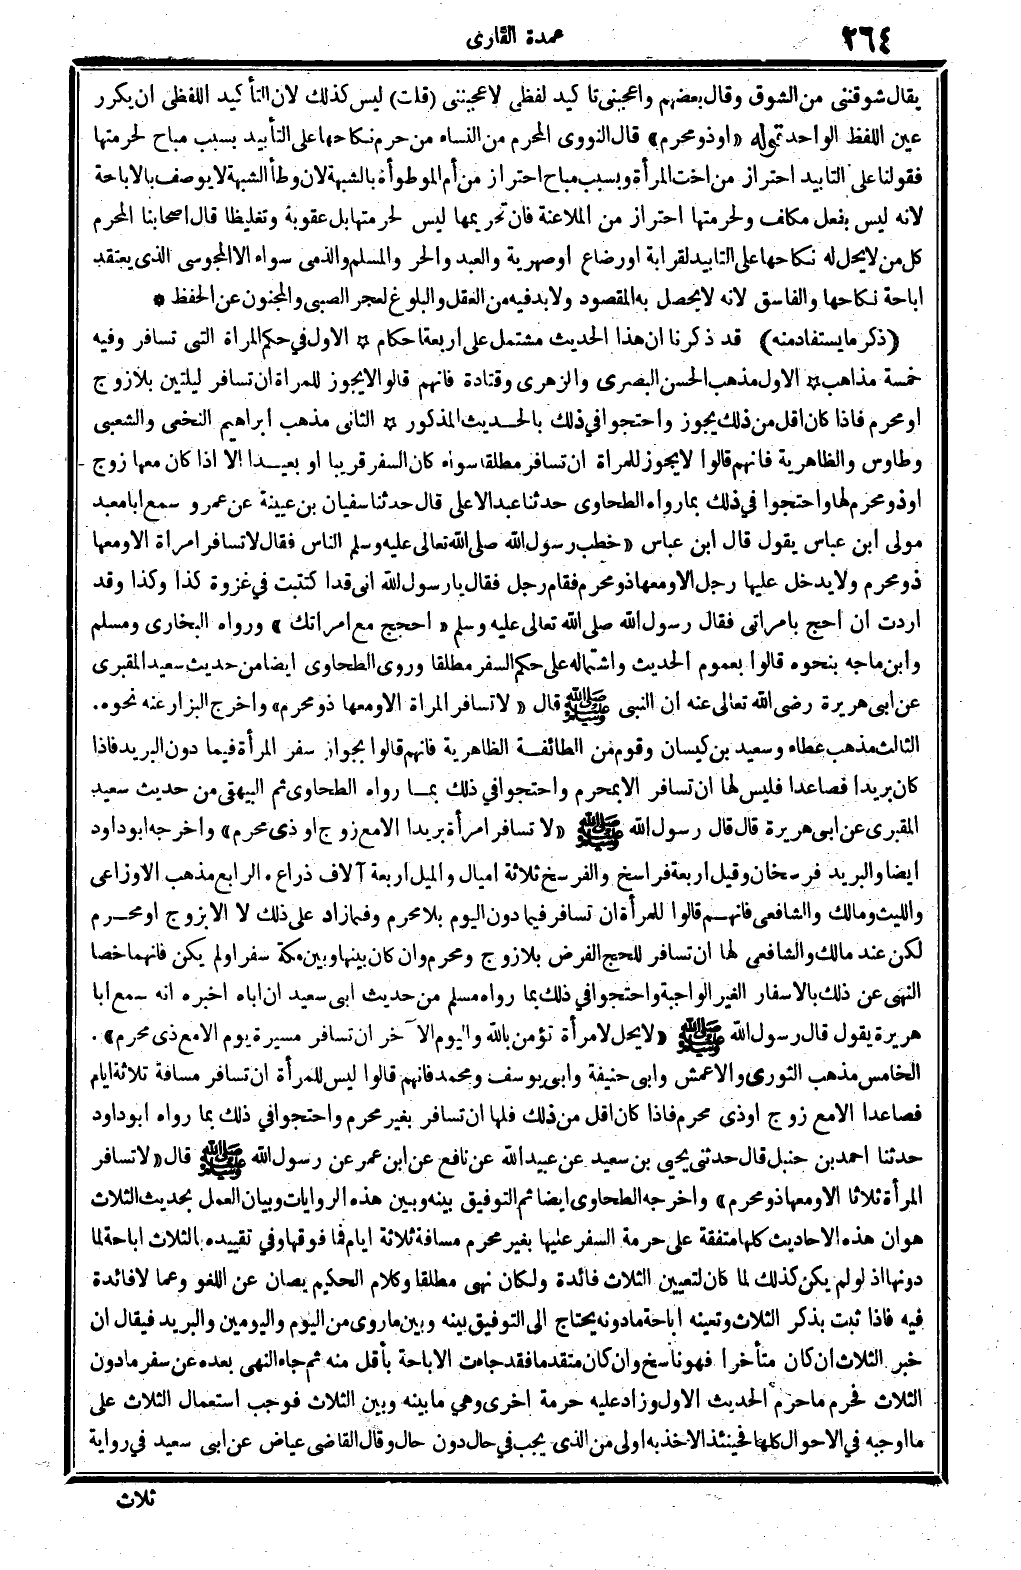 ٢٦٤
عمدة القارى
يقال شوقنى من الشوق وقال بعضهم واعجبنى تأكيد لفظى لاعجبننى (قلت) ليس كذلك لان التأكيد اللفظى ان يكرر
عين اللفظ الواحد قوله «اوذو محرم» قال النووى المحرم من النساء من حرم نكاحها على التأبيد بسبب مباح لحرمتها
فقولنا على التابيد احتراز من اخت المرأة وبسبب مباح احتراز من أم الموطوأة بالشبهة لان وطأ الشبهة لا يوصف بالاباحة
لانه ليس بفعل مكلف ولحرمتها احتراز من الملاعنة فان تحريمها ليس لحرمتها بل عقوبة وتغليظا قال اصحابنا المحرم
كل من لا يحل له نكاحها على التابيد لقرابة اورضاع اوصهرية والعبد والحر والمسلم والذمى سواء الا المجوسى الذى يعتقد
اباحة نكاحها والفاسق لانه لا يحصل به المقصود ولا بد فيه من العقل والبلوغ لعجز الصبى والمجنون عن الحفظ *
(ذكر ما يستفاد منه) قد ذكرنا ان هذا الحديث مشتمل على اربعة احكام * الاول فى حكم المراة التى تسافر وفيه
خمسة مذاهب * الاول مذهب الحسن البصرى والزهرى وقتادة فانهم قالوا لا يجوز للمراة ان تسافر ليلتين بلا زوج
او محرم فاذا كان اقل من ذلك يجوز واحتجوا فى ذلك بالحديث المذكور * الثانى مذهب ابراهيم النخعى والشعبى
وطاوس والظاهرية فانهم قالوا لا يجوز للمراة ان تسافر مطلقا سواء كان السفر قريبا او بعيدا الا اذا كان معها زوج
اوذو محرم لها واحتجوا فى ذلك بما رواه الطحاوى حدثنا عبد الاعلى قال حدثنا سفيان بن عيينة عن عمرو سمع ابا معبد
مولى ابن عباس يقول قال ابن عباس «خطب رسول الله صلى الله تعالى عليه وسلم الناس فقال لا تسافر امراة الا ومعها
ذو محرم ولا يدخل عليها رجل الا ومعها ذو محرم فقام رجل فقال يا رسول الله انى قد اكتتبت فى غزوة كذا وكذا وقد
اردت ان احج بامراتى فقال رسول الله صلى الله تعالى عليه وسلم «احجج مع امراتك» ورواه البخارى ومسلم
وابن ماجه بنحوه قالوا بعموم الحديث واشتماله على حكم السفر مطلقا وروى الطحاوى ايضا من حديث سعيد المقبرى
عن ابى هريرة رضى الله تعالى عنه ان النبى ﷺ قال «لا تسافر المراة الا ومعها ذو محرم» واخرج البزار عنه نحوه.
الثالث مذهب عطاء وسعيد بن كيسان وقوم من الطائفة الظاهرية فانهم قالوا بجواز سفر المرأة فيما دون البريد فاذا
كان بريدا فصاعدا فليس لها ان تسافر الا بمحرم واحتجوا فى ذلك بما رواه الطحاوى ثم البيهقى من حديث سعيد
المقبرى عن ابى هريرة قال قال رسول الله ﷺ «لا تسافر امرأة بريدا الا مع زوج او ذى محرم» واخرجه ابو داود
ايضا والبريد فرسخان وقيل اربعة فراسخ والفرسخ ثلاثة اميال والميل اربعة آلاف ذراع. الرابع مذهب الاوزاعى
والليث ومالك والشافعى فانهم قالوا للمرأة ان تسافر فيما دون اليوم بلا محرم وفيما زاد على ذلك لا الا بزوج او محرم
لكن عند مالك والشافعى لها ان تسافر للحج الفرض بلا زوج ومحرم وان كان بينها وبين مكة سفر اولم يكن فانهما خصا
النهى عن ذلك بالاسفار الغير الواجبة واحتجوا فى ذلك بما رواه مسلم من حديث ابى سعيد ان اباه اخبره انه سمع ابا
هريرة يقول قال رسول الله ﷺ «لا يحل لامرأة تؤمن بالله واليوم الآخر ان تسافر مسيرة يوم الا مع ذى محرم» .
الخامس مذهب الثورى والاعمش وابى حنيفة وابى يوسف ومحمد فانهم قالوا ليس للمرأة ان تسافر مسافة ثلاثة ايام
فصاعدا الا مع زوج اوذى محرم فاذا كان اقل من ذلك فلها ان تسافر بغير محرم واحتجوا فى ذلك بما رواه ابو داود
حدثنا احمد بن حنبل قال حدثنى يحيى بن سعيد عن عبيد الله عن نافع عن ابن عمر عن رسول الله ﷺ قال «لا تسافر
المرأة ثلاثا الا ومعها ذو محرم» واخرجه الطحاوى ايضا ثم التوفيق بينه وبين هذه الروايات وبيان العمل بحديث الثلاث
هو ان هذه الاحاديث كلها متفقة على حرمة السفر عليها بغير محرم مسافة ثلاثة ايام فما فوقها وفى تقييده بالثلاث اباحة لما
دونها اذ لو لم يكن كذلك لما كان لتعيين الثلاث فائدة ولكان نهى مطلقا وكلام الحكيم يصان عن اللغو وعما لا فائدة
فيه فاذا ثبت بذكر الثلاث وتعينه اباحة ما دونه يحتاج الى التوفيق بينه وبين ما روى من اليوم واليومين والبريد فيقال ان
خبر الثلاث ان كان متأخرا فهو ناسخ وان كان متقدما فقد جاءت الاباحة بأقل منه ثم جاء النهى بعده عن سفر ما دون
الثلاث فحرم ما حرم الحديث الاول وزاد عليه حرمة اخرى وهى ما بينه وبين الثلاث فوجب استعمال الثلاث على
ما اوجبه فى الاحوال كلها فحينئذ الاخذ به اولى من الذى يجب فى حال دون حال وقال القاضى عياض عن ابى سعيد فى رواية
ثلاث